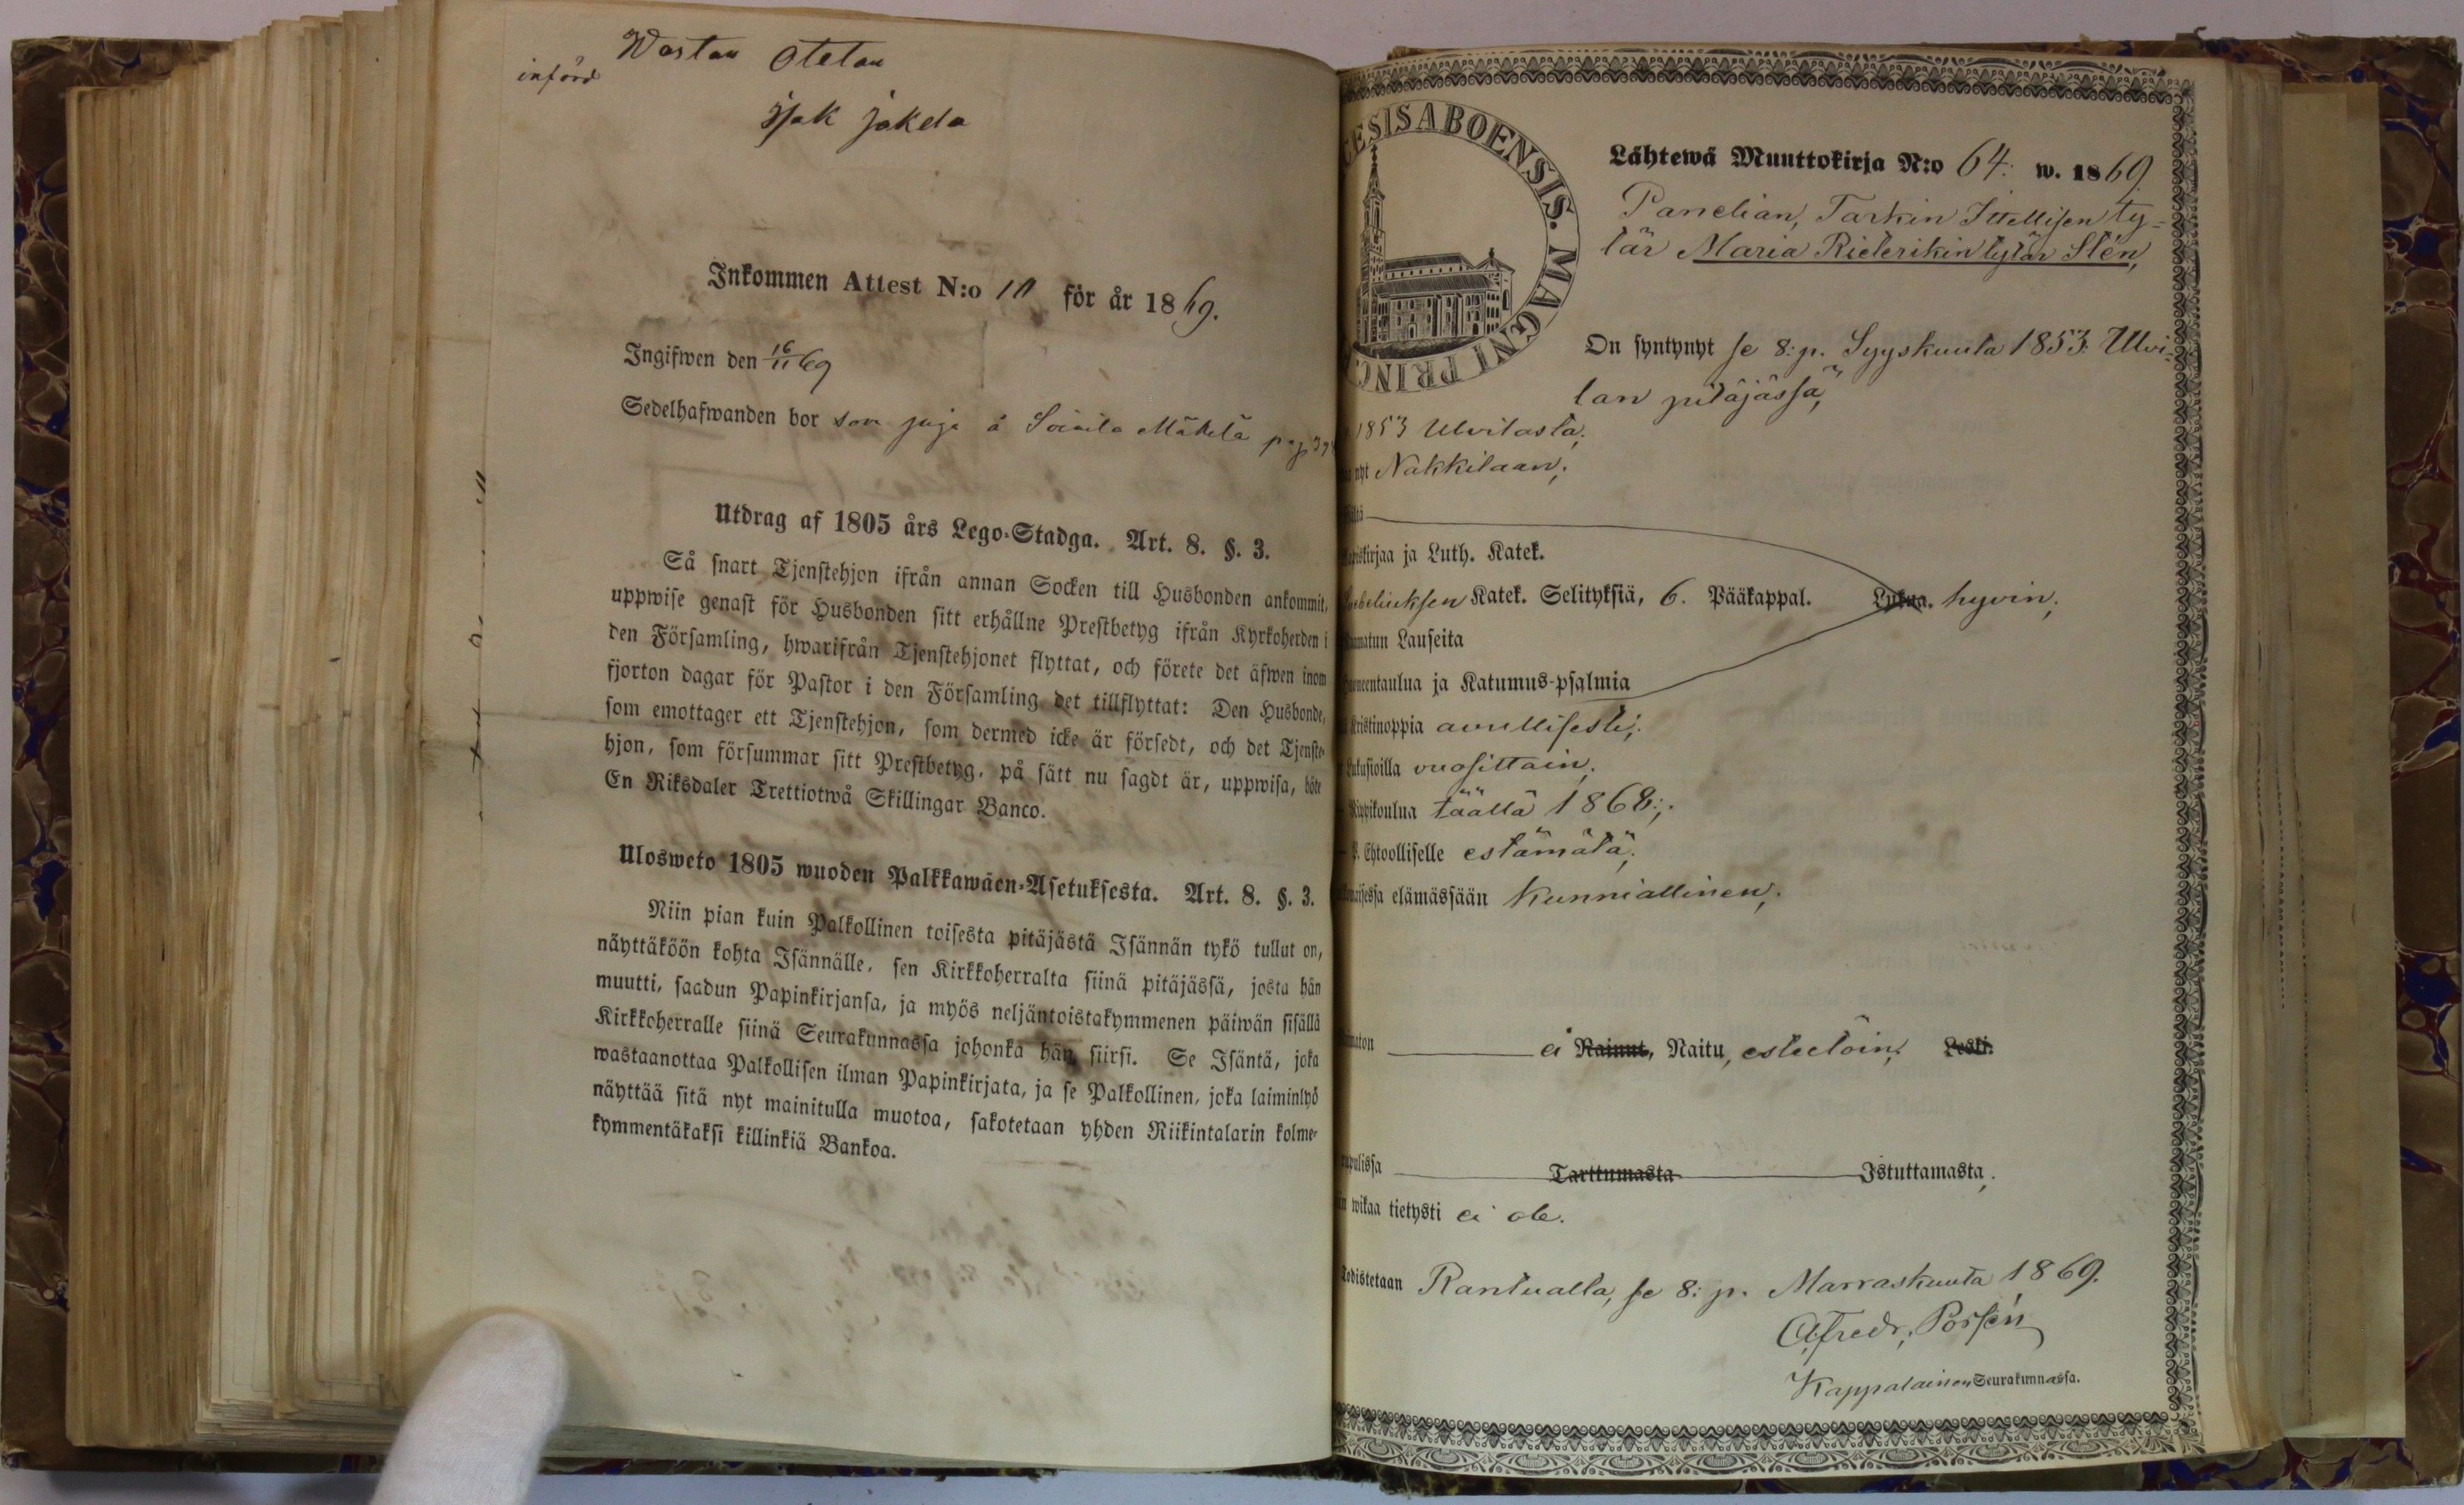 Wastan otetan
införd
Isak Jakola
Inkommen Attest N:o 10 för år 1869.
Ingifwen den 16/11 69
Sedelhafwanden bor som piga å Soinila Mäkelä pag
Utdrag af 1805 års Lego-Stadga. Art. 8. §. 3.
Så snart Tjenstehjon ifrån annan Socken till Husbonden ankommit,
uppwise genast för Husbonden sitt erhållne Prestbetyg ifrån Kyrkoherden i
den Församling, hwarifrån Tjenstehjonet flyttat, och förete det äfwen inom
fjorton dagar för Pastor i den Församling det tillflyttat: Den Husbonde,
som emottager ett Tjenstehjon, som dermed icke är försedt, och det Tjenste-
hjon, som försummar sitt Prestbetyg, på sätt nu sagdt är, uppwisa, böte
En Riksdaler Trettiotwå Skillingar Banco.
Ulosweto 1805 wuoden Palkkawäen-Asetuksesta. Art. 8. §. 3.
Niin pian kuin Palkollinen toisesta pitäjästä Isännän tykö tullut on,
näyttäköön kohta Isännälle, sen Kirkkoherralta siinä pitäjässä, josta hän
muutti, saadun Papinkirjansa, ja myös neljäntoistakymmenen päiwän sisällä
Kirkkoherralle siinä Seurakunnassa johonka hän siirsi. Se Isäntä, joka
wastaanottaa Palkollisen ilman Papinkirjata, ja se Palkollinen, joka laiminlyö
näyttää sitä nyt mainitulla muotoa, sakotetaan yhden Riikintalarin kolme-
kymmentäkaksi killinkiä Bankoa.
ESIS ABOENSIS. MAGNI PRINC
Lähtewä Muuttokirja N:o 64. w. 1869.
Panelian, Tarkin Ittellisen ty-
tär Maria Rieterikin tytär Stén,
On syntynyt se 8:p. Syyskuuta 1853. Ulvi-
lan pitäjässä,
1853 Ulvilasta,
nyt Nakkilaan,
kirjaa ja Luth. Katek.
Katek. Selityksiä, 6. Pääkappal. Lukua. hyvin,
Lauseita
taulua ja Katumus-psalmia
Kristinoppia avullisesti,
Lukusioilla vuosittain,
Rippikoulua täällä 1868,
Ehtoolliselle estämätä,
elämässään kunniallinen,
ei Nainut, Naitu, esteetöin, Leski.
Tarttumasta Istuttamasta,
wikaa tietysti ei ole.
Todistetaan Rantualla, se 8:p. Marraskuuta 1869.
Alfredr. Porsén
Kappalainen Seurakunnassa.